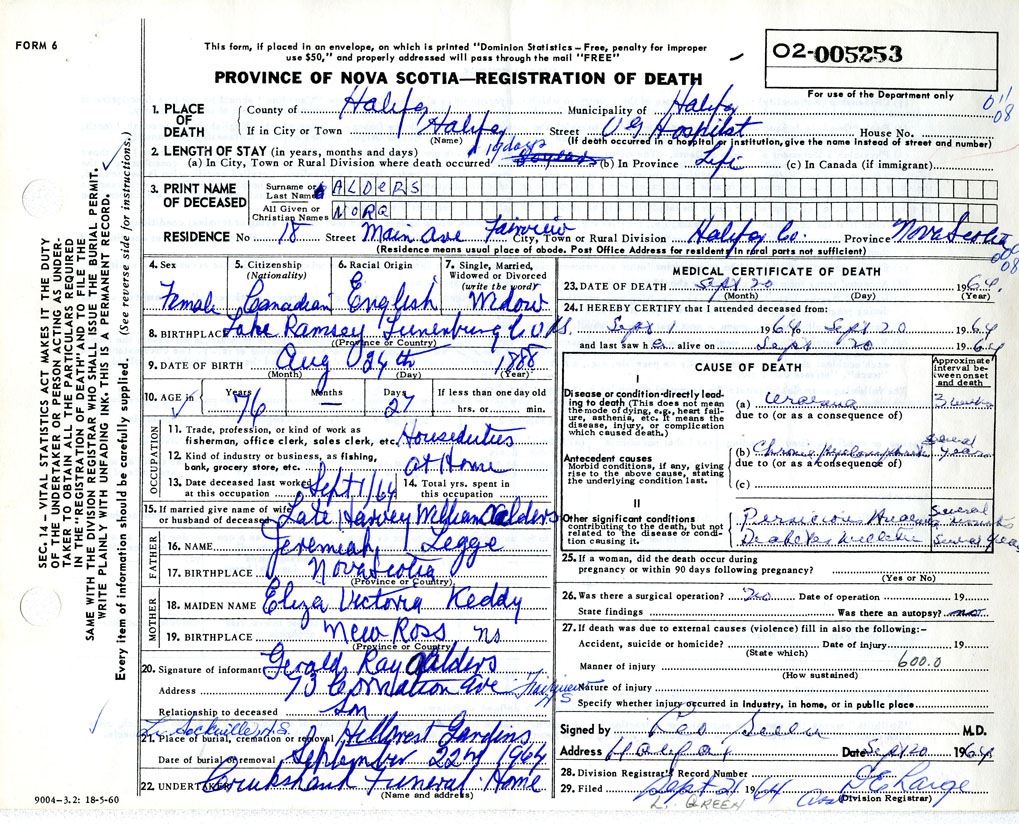 FORM 6
This form, if placed in an envelope, on which is printed "Dominion Statistics – Free, penalty for improper
use $50," and properly addressed will pass through the mail "FREE"
02-005253
For use of the Department only
PROVINCE OF NOVA SCOTIA—REGISTRATION OF DEATH
011
08
1. PLACE OF DEATH County of Halifax Municipality of Halifax
If in City or Town Halifax Street VG Hospital House No.
(Name) (If death occurred in a hospital or institution, give name instead of street and number)
2. LENGTH OF STAY (in years, months and days) 19 days
(a) In City, Town or Rural Division where death occurred (b) In Province Life (c) In Canada (if immigrant)
3. PRINT NAME OF DECEASED Surname or Last Name ALDERS
All Given or Christian Names NORA
RESIDENCE No 18 Street Main Ave Fairview City, Town or Rural Division Halifax Co. Province Nova Scotia
(Residence means usual place of abode. Post Office Address for residents in rural parts not sufficient)
08
4. Sex 5. Citizenship (Nationality) 6. Racial Origin 7. Single, Married, Widowed or Divorced (write the word)
Female Canadian English Widow
8. BIRTHPLACE Lake Ramsey Lunenburg Co. N.S.
(Province or Country)
9. DATE OF BIRTH Aug 24th 1888
(Month) (Day) (Year)
10. AGE in Years Months Days If less than one day old
76 — 27 hrs. or min.
OCCUPATION
11. Trade, profession, or kind of work as
fisherman, office clerk, sales clerk, etc. Houseduties
12. Kind of industry or business, as fishing,
bank, grocery store, etc. at Home
13. Date deceased last worked at this occupation Sept 1/64 14. Total yrs. spent in this occupation
15. If married give name of wife
or husband of deceased Late Harvey William Alders
FATHER
16. NAME Jeremiah Legge
17. BIRTHPLACE Nova Scotia
(Province or Country)
MOTHER
18. MAIDEN NAME Eliza Victoria Keddy
19. BIRTHPLACE New Ross NS
(Province or Country)
20. Signature of informant Gerald Ray Alders
Address 73 Coronation Ave Fairview NS
Relationship to deceased Son
L. Sackville N.S.
21. Place of burial, cremation or removal Hillcrest Gardins
Date of burial or removal September 22nd 1964
22. UNDERTAKER Cruikshank Funeral Home
(Name and address)
9004-3.2: 18-5-60
MEDICAL CERTIFICATE OF DEATH
23. DATE OF DEATH Sept 20 1964
(Month) (Day) (Year)
24. I HEREBY CERTIFY that I attended deceased from:
Sept 1 1964 Sept 20 1964
and last saw her alive on Sept 20 1964
CAUSE OF DEATH
Approximate interval between onset and death
I
Disease or condition directly leading to death (This does not mean the mode of dying, e.g., heart failure, asthenia, etc. It means the disease, injury, or complication which caused death.)
(a) Uraemia 3 weeks
due to (or as a consequence of)
Antecedent causes
Morbid conditions, if any, giving rise to the above cause, stating the underlying condition last.
(b) Chronic Pyelonephritis several years
due to (or as a consequence of)
(c)
II
Other significant conditions contributing to the death, but not related to the disease or condition causing it.
Pernicious Anaemia several months
Diabetes Mellitus several years
25. If a woman, did the death occur during
pregnancy or within 90 days following pregnancy?
(Yes or No)
26. Was there a surgical operation? No Date of operation 19
State findings Was there an autopsy? no
27. If death was due to external causes (violence) fill in also the following:–
Accident, suicide or homicide? Date of injury 19
(State which)
Manner of injury 600.0
(How sustained)
Nature of injury
Specify whether injury occurred in industry, in home, or in public place
Signed by M.D.
Address Halifax Date Sept 20 1964
28. Division Registrar's Record Number
29. Filed Sept 21 1964
(Division Registrar)
L. GREEN
SEC. 14 – VITAL STATISTICS ACT MAKES IT THE DUTY
OF THE UNDERTAKER OR PERSON ACTING AS UNDER-
TAKER TO OBTAIN ALL THE PARTICULARS REQUIRED
IN THE "REGISTRATION OF DEATH" AND TO FILE THE
SAME WITH THE DIVISION REGISTRAR WHO SHALL ISSUE THE BURIAL PERMIT.
WRITE PLAINLY WITH UNFADING INK. THIS IS A PERMANENT RECORD.
Every item of information should be carefully supplied. (See reverse side for instructions.)